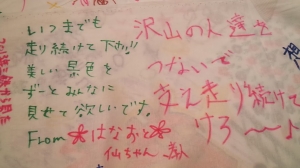 いつまでも
走り続けて下さい!!
美しい景色を
ずっとみんなに
見せて欲しいです。
From はなおと
仙ちゃん
沢山の人達を
つないで
支え走り続けて
けろ〜〜♪